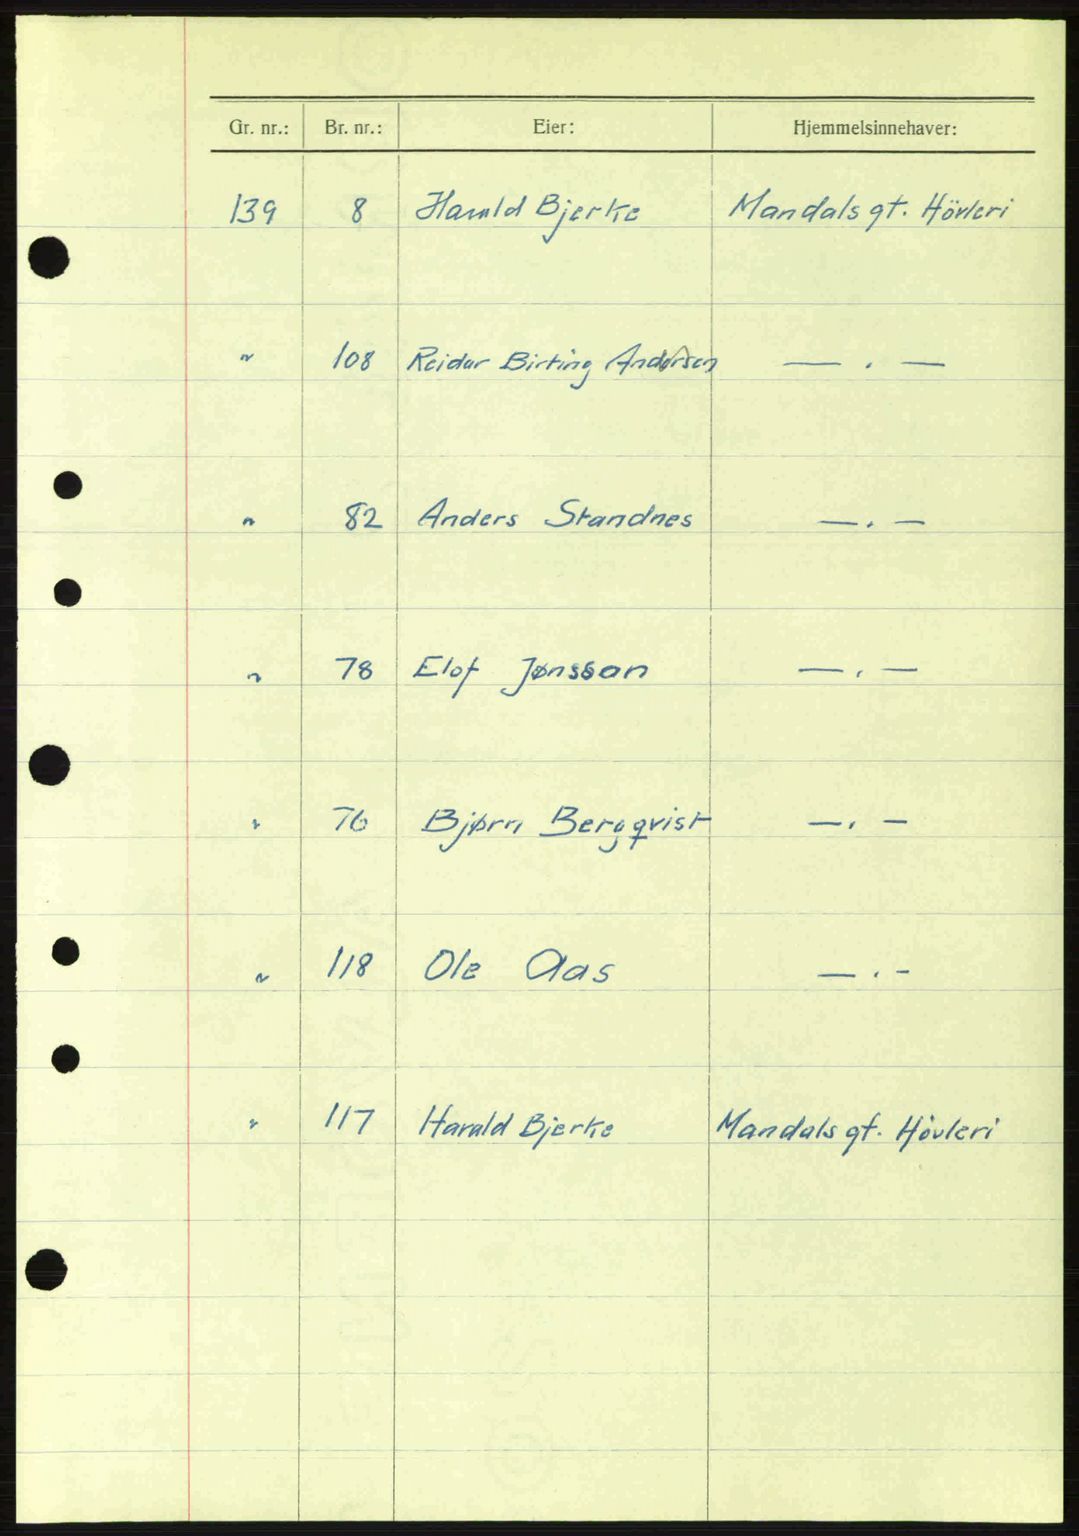 Gr. nr.: Br. nr.: Eier: Hjemmelsinnehaver:
139 8 Harald Bjerke Mandals gt. Hövleri
" 108 Reidar Birting Andersen — . —
" 82 Anders Standnes — . —
" 78 Elof Jønsson — . —
" 76 Bjørn Bergqvist — . —
" 118 Ole Aas — . -
" 117 Harald Bjerke Mandals gt. Hövleri